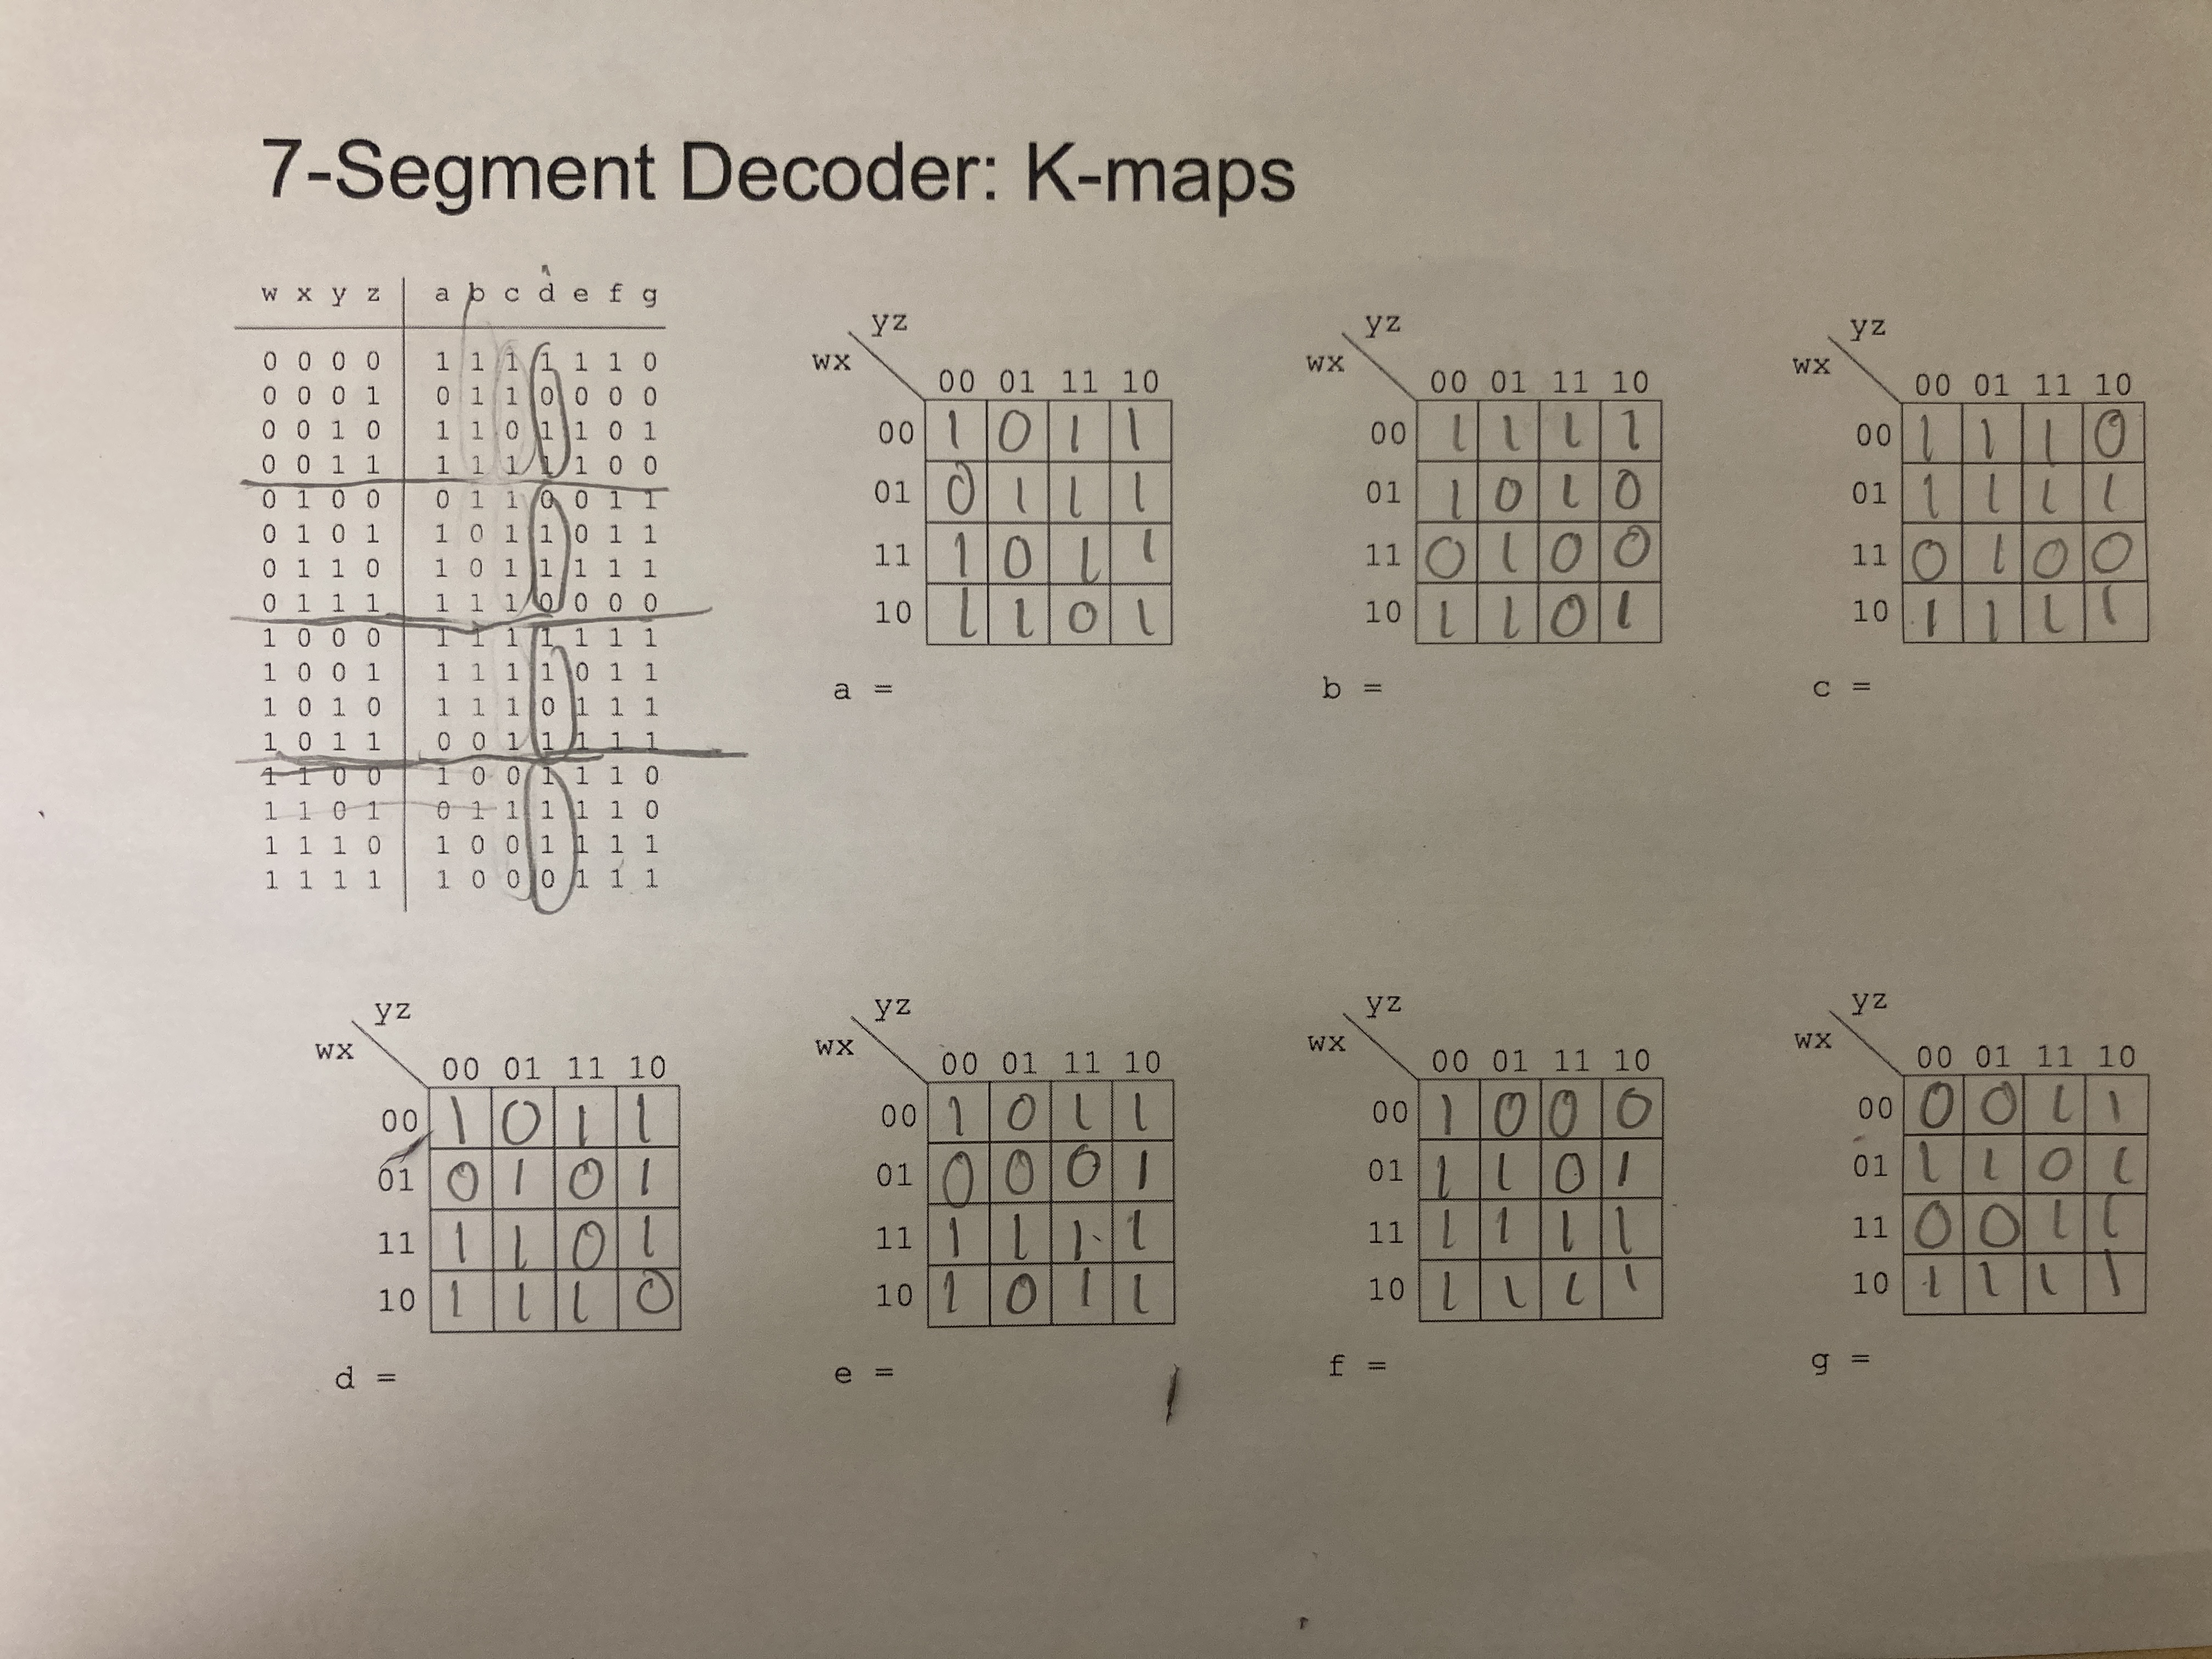 7-Segment Decoder: K-maps
w x y z a b c d e f g
0 0 0 0 1 1 1 1 1 1 0
0 0 0 1 0 1 1 0 0 0 0
0 0 1 0 1 1 0 1 1 0 1
0 0 1 1 1 1 1 1 1 0 0
0 1 0 0 0 1 1 0 0 1 1
0 1 0 1 1 0 1 1 0 1 1
0 1 1 0 1 0 1 1 1 1 1
0 1 1 1 1 1 1 0 0 0 0
1 0 0 0 1 1 1 1 1 1 1
1 0 0 1 1 1 1 1 0 1 1
1 0 1 0 1 1 1 0 1 1 1
1 0 1 1 0 0 1 1 1 1 1
1 1 0 0 1 0 0 1 1 1 0
1 1 0 1 0 1 1 1 1 1 0
1 1 1 0 1 0 0 1 1 1 1
1 1 1 1 1 0 0 0 1 1 1
yz
wx
00 01 11 10
00 1 0 1 1
01 0 1 1 1
11 1 0 1 1
10 1 1 0 1
a =
yz
wx
00 01 11 10
00 1 1 1 1
01 1 0 1 0
11 0 1 0 0
10 1 1 0 1
b =
yz
wx
00 01 11 10
00 1 1 1 0
01 1 1 1 1
11 0 1 0 0
10 1 1 1 1
c =
yz
wx
00 01 11 10
00 1 0 1 1
01 0 1 0 1
11 1 1 0 1
10 1 1 1 0
d =
yz
wx
00 01 11 10
00 1 0 1 1
01 0 0 0 1
11 1 1 1 1
10 1 0 1 1
e =
yz
wx
00 01 11 10
00 1 0 0 0
01 1 1 0 1
11 1 1 1 1
10 1 1 1 1
f =
yz
wx
00 01 11 10
00 0 0 1 1
01 1 1 0 1
11 0 0 1 1
10 1 1 1 1
g =